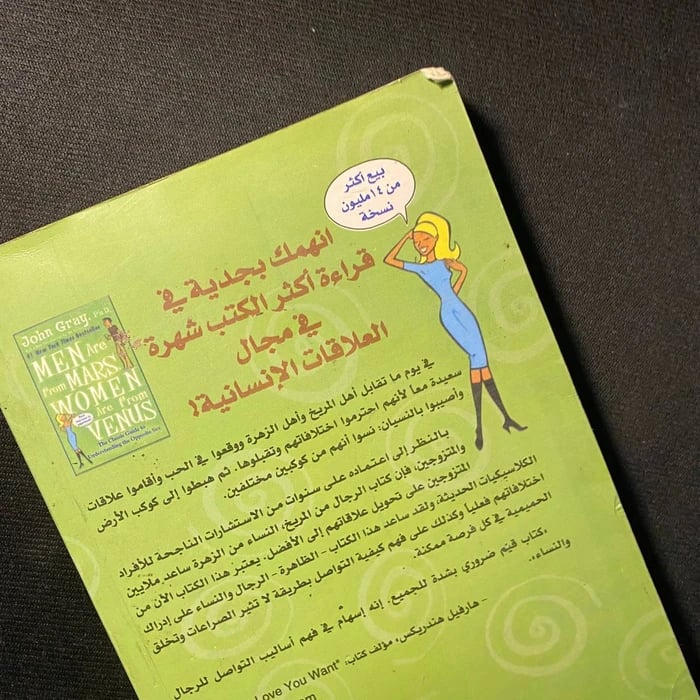 بيع أكثر
من ١٤ مليون
نسخة
انهمك بجدية في
قراءة أكثر الكتب شهرة
في مجال
العلاقات الإنسانية!
John Gray, Ph.D.
#1 New York Times Bestseller
MEN Are
from MARS,
WOMEN
Are from
VENUS
The Classic Guide to
Understanding the Opposite Sex
في يوم ما تقابل أهل المريخ وأهل الزهرة ووقعوا في الحب وأقاموا علاقات
سعيدة معاً لأنهم احترموا اختلافاتهم وتقبلوها. ثم هبطوا إلى كوكب الأرض
وأصيبوا بالنسيان: نسوا أنهم من كوكبين مختلفين.
بالنظر إلى اعتماده على سنوات من الاستشارات الناجحة للأفراد
والمتزوجين، فإن كتاب الرجال من المريخ، النساء من الزهرة ساعد ملايين
المتزوجين على تحويل علاقاتهم إلى الأفضل. يعتبر هذا الكتاب الآن من
الكلاسيكيات الحديثة، ولقد ساعد هذا الكتاب - الظاهرة - الرجال والنساء على إدراك
اختلافاتهم فعلياً وكذلك على فهم كيفية التواصل بطريقة لا تثير الصراعات وتخلق
الحميمية في كل فرصة ممكنة.
«كتاب قيّم ضروري بشدة للجميع. إنه إسهامٌ في فهم أساليب التواصل للرجال
والنساء».
- هارفيل هندريكس، مؤلف كتاب: "Love You Want